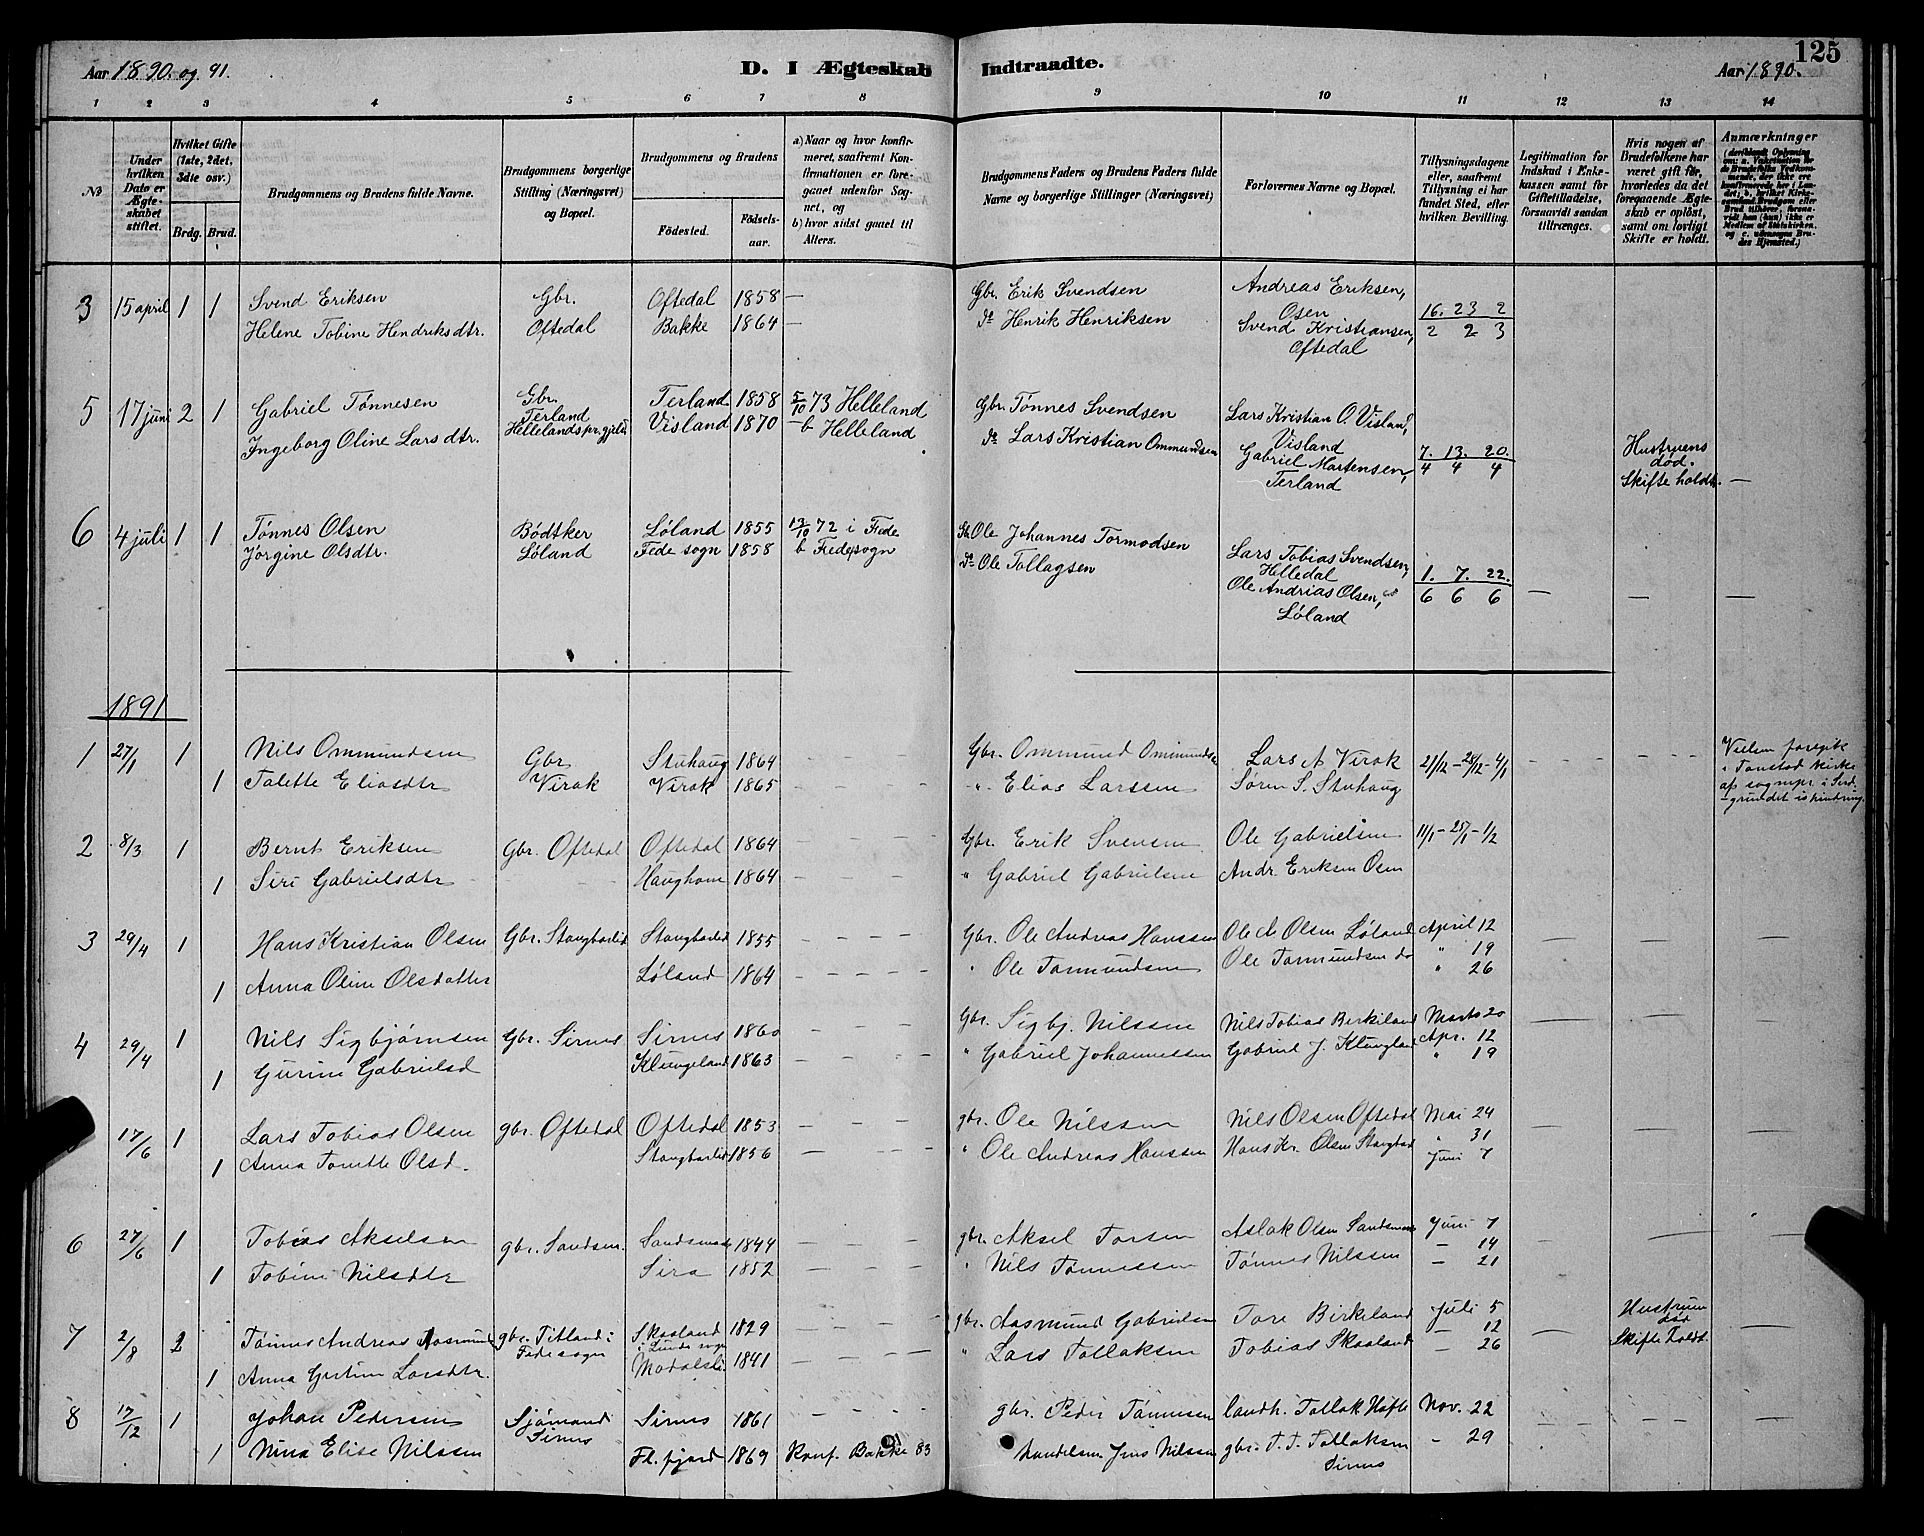 Aar 1890. og 91.
D. I Ægteskab Indtraadte.
Aar 1890.
125
1 2 3 4 5 6 7 8 9 10 11 12 13 14
No
Under hvilken Dato er Ægteskabet stiftet.
Hvilket Gifte (1ste, 2det, 3die osv.)
Brdg. Brud.
Brudgommens og Brudens fulde Navne.
Brudgommens borgerlige Stilling (Næringsvei) og Bopæl.
Brudgommens og Brudens
Fødested. Fødselsaar.
a) Naar og hvor konfirmeret, saafremt Konfirmationen er foregaaet udenfor Sognet, og
b) hvor sidst gaaet til Alters.
Brudgommens Faders og Brudens Faders fulde Navne og borgerlige Stillinger (Næringsvei)
Forlovernes Navne og Bopæl.
Tillysningsdagene eller, saafremt Tillysning ei har fundet Sted, efter hvilken Bevilling.
Legitimation for Indskud i Enkekassen samt for Giftetilladelse, forsaavidt saadan tiltrænges.
Hvis nogen af Brudefolkene har været gift før, hvorledes da det foregaaende Ægteskab er opløst, samt om lovligt Skifte er holdt.
Anmærkninger
3 15 april 1 1 Svend Eriksen Gbr. Oftedal 1858 — Gbr. Erik Svendsen Andreas Eriksen, Osen 16. 23 2
Helene Tobine Hendriksdtr. Oftedal Bakke 1864 — do Henrik Henriksen Svend Kristiansen, Oftedal 2 2 3
5 17 juni 2 1 Gabriel Tønnesen Gbr. Terland Terland 1858 5/10 73 Helleland Gbr. Tønnes Svendsen Lars Kristian O. Visland, Visland 7. 13. 20.
Ingeborg Oline Larsdtr. Hellelands pr.gjeld Visland 1870 — b Helleland do Lars Kristian Ommundsen Gabriel Martensen, Terland 4 4 4 Hustruens død. Skifte holdt. —
6 4 juli 1 1 Tønnes Olsen Bødtker Løland 1855 13/10 72 i Fede Ole Johannes Tormodsen Lars Tobias Svendsen, Helledal 1. 7. 22.
Jørgine Olsdtr. Løland Fede sogn 1858 b Fedesogn do Ole Tollagsen Ole Andrias Olsen, Løland 6 6 6 — — —
1891
1 27/1 1 Nils Ommundsen Gbr Stuhaug 1864 Gbr. Ommund Ommundsen Lars A Virak 21/12 - 28/12 - 4/1 Vielsen foregik i Tonstad kirke af sognepr. i Sird- grundet ishindring.
1 Talette Eliasdtr Virak Virak 1865 " Elias Larssen Søren S. Stuhaug
2 8/3 1 Bernt Eriksen Gbr. Oftedal Oftedal 1864 Gbr. Erik Svensen Ole Gabrielsen 11/1 - 25/1 - 1/2
1 Siri Gabrielsdtr Haughom 1864 " Gabriel Gabrielsen Andr Eriksen Osen
3 29/4 1 Hans Kristian Olsen Gbr. Stangborlid Stangborlid 1855 Gbr. Ole Andreas Hanssen Ole A Olsen Løland April 12
1 Anna Oline Olsdatter Løland 1864 " Ole Tormundsen Ole Tormundsen do " 19
" 26
4 29/4 1 Nils Sigbjørnsen Gbr. Sirnes Sirnes 1860 Gbr. Sigbj. Nilssen Nils Tobias Birkeland Marts 20
1 Gurine Gabrielsd Klungeland 1863 " Gabriel Johannessen Gabriel J. Klungland Apr. 12
" 19
17/6 1 Lars Tobias Olsen gbr. Oftedal Oftedal 1853 gbr. Ole Nilssen Nils Olsen Oftedal Mai 24
1 Anna Tonette Olsd. Stangborlid 1856 " Ole Andreas Hanssen Hans Kr. Olsen " 31
Juni 7
6 27/6 1 Tobias Akselsen gbr. Sandsm. 1844 gbr. Aksel Torsen Aslak Olsen Juni 7
1 Tobine Nilsdtr Sira 1852 " Nils Tønnessen Tønnes Nilssen — 14
— 21
7 2/8 2 Tønnes Andreas gbr. Titland i Fedesogn Skaaland i Lunde sogn 1829 gbr. Aasmund Gabrielsen Tore Birkeland Juli 5 Hustruen død
1 Anna Larsdtr. 1841 " Lars Tollaksen Tobias Skaaland — 12 Skifte holdt.
— 26
8 17/12 1 Johan Pedersen Sjømand Sirnes Sirnes 1861 gbr. Peder Tønnesen landh. Tollak Nov. 22
1 Nina Elise Nilssen Fl. fjord 1869 Konf. Bakke 83 Jens Nilssen gbr. T. T. Tollaksen Sirnes — 29